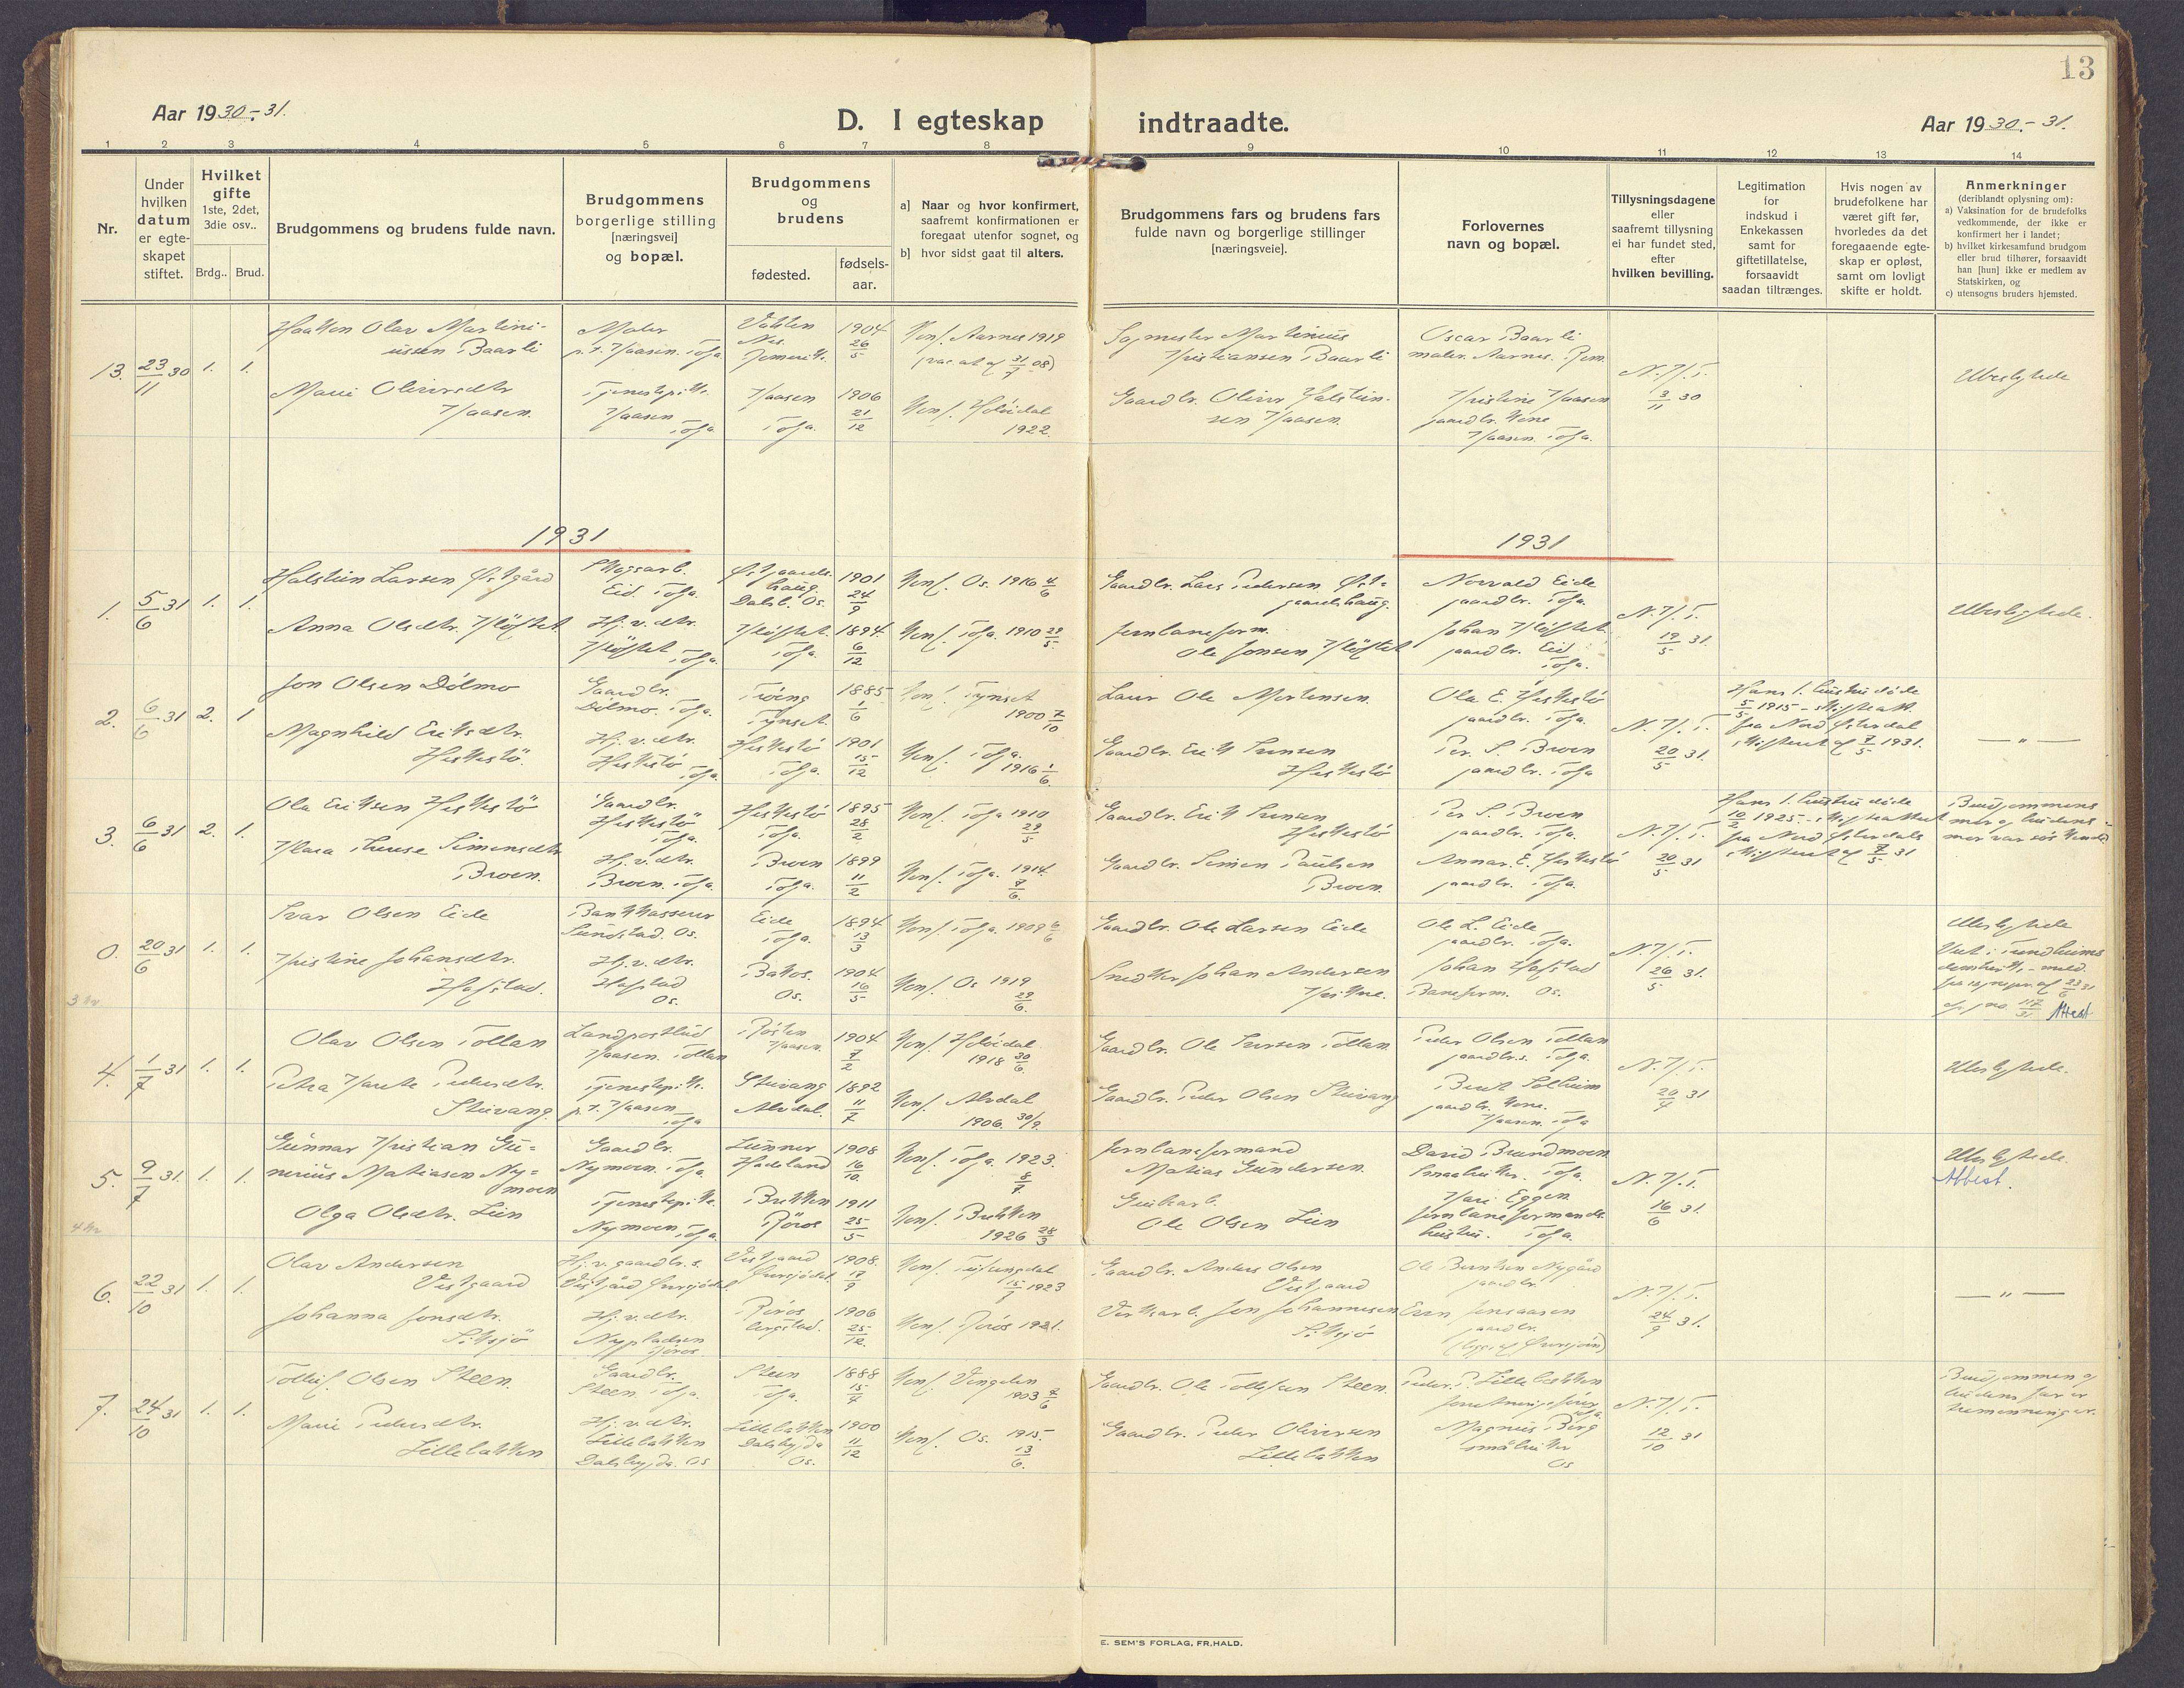 13
Aar 1930-31.
D. I egteskap indtraadte.
Aar 1930.-31.
1 2 3 4 5 6 7 8 9 10 11 12 13 14
Nr.
Under
hvilken
datum
er egte-
skapet
stiftet.
Hvilket
gifte
1ste, 2det,
3die osv..
Brdg.. Brud.
Brudgommens og brudens fulde navn.
Brudgommens
borgerlige stilling
[næringsvei]
og bopæl.
Brudgommens
og
brudens
fødested.
fødsels-
aar.
a] Naar og hvor konfirmert,
saafremt konfirmationen er
foregaat utenfor sognet, og
b] hvor sidst gaat til alters.
Brudgommens fars og brudens fars
fulde navn og borgerlige stillinger
[næringsveie].
Forlovernes
navn og bopæl.
Tillysningsdagene
eller
saafremt tillysning
ei har fundet sted,
efter
hvilken bevilling.
Legitimation
for
indskud i
Enkekassen
samt for
giftetillatelse,
forsaavidt
saadan tiltrænges.
Hvis nogen av
brudefolkene har
været gift før,
hvorledes da det
foregaaende egte-
skap er opløst,
samt om lovligt
skifte er holdt.
Anmerkninger
(deriblandt oplysning om):
a) Vaksination for de brudefolks
vedkommende, der ikke er
konfirmert her i landet;
b) hvilket kirkesamfund brudgom
eller brud tilhører, forsaavidt
han [hun] ikke er medlem av
Statskirken, og
c) utensogns bruders hjemsted.
13. 23/11 30 1. 1.
Haakon Olav Martini-
ussen Baarli
Maler
p.t. Haasen. Tolga
Nes.
Romerik.
1904
26/5
Konf. Aarnes 1919
(vac. att. af 31/7 08)
Martinius
Kristiansen Baarli
Oscar Baarli
maler. Aarnes. Rom.
N.K.T.
3/11 30
Ubeslegtede
Marie Oliversdtr
Haasen.
Tjenestepike.
Haasen
Tolga
Haasen
Tolga.
1906
21/12
Konf. Holøidal
1922.
Gaardbr. Oliver Halstein-
sen Haasen.
Kristine Haasen
gaardbr. kone
Haasen. Tolga.
1931
1931
1. 5/6 31 1. 1.
Halstein Larsen Østgård
Skogsarb.
Eid. Tolga.
Østgaards-
haug.
Dalsb. Os.
1901
24/9
Konf. Os. 1916 4/6
Gaardbr. Lars Pedersen Øst-
gaardshaug.
Norvald Eide
gaardbr. Tolga.
N.K.T.
19/5 31.
Ubeslegtede.
Anna Olsdtr. Kløftet
Hj. v. dtr.
Kløftet Tolga.
Kløftet.
Tolga.
1894.
6/12
Konf. Tolga. 1910 29/5.
Jernbaneform.
Ole Jonsen Kløftet
Johan Kløftet
gaardbr. Eid
Tolga.
2. 6/6 31 2. 1
Jon Olsen Dølmo
Gaardbr.
Dølmo. Tolga.
Trøeng
Tynset.
1885
1/6
Konf. Tynset
1900 7/10
Ole Mortensen.
Ola E. Heskestø
gaardbr. Tolga.
N.K.T.
20/5 31.
Hans 1. hustru døde
5/5 1915 - skifteatt.
fra Nord Østerdal
skifterett af 7/5 1931.
— " —
Magnhild Eriksdtr.
Heskestø.
Hj. v. dtr.
Heskestø Tolga.
Heskestø
Tolga.
1901
15/12
Konf. Tolga.
1916 1/6.
Gaardbr. Erik Iversen
Heskestø
Per. S. Broen
gaardbr. Tolga
3. 6/6 31 2. 1.
Ola Eriksen Heskestø
Gaardbr.
Heskestø
Tolga.
Heskestø
Tolga.
1895
28/2
Konf. Tolga 1910
29/5
Gaardbr. Erik Iversen
Heskestø
Per S. Broen
gaardbr. Tolga.
N.K.T.
20/5 31
Hans 1. hustru døde
10/2 1925. - skifteattest
fra Nord Østerdals
skifterett af 7/5 31
Brudgommens
mor og brudens
mor var søskende
Klara Therese Simensdtr
Broen.
Hj. v. dtr.
Broen. Tolga.
Broen
Tolga.
1899
11/2
Konf. Tolga. 1914.
7/6.
Gaardbr. Simen Paulsen
Broen.
Annar. E. Heskestø
gaardbr. Tolga.
0. 20/6 31 1. 1.
Ivar Olsen Eide
Bankkasserer
Sundstad. Os.
Eide
Tolga.
1894
13/3
Konf. Tolga. 1909 6/6
Gaardbr. Ole Larsen Eide
Ole L. Eide
gaardbr. Tolga.
N.K.T.
26/5 31.
Ubeslegtede
Viet i Trondheims
domkirke - meld.
fra sogneprs. af 23/6 31
cf. jno. 117/31 Attest
Kristine Johansdtr.
Hafstad.
Hj. v. dtr.
Hafstad
Os.
Bakos.
Os.
1904
16/5
Konf. Os 1919
29/6.
Snekker Johan Andersen
Johan Hafstad
Baneform. Os.
3 kr
4. 1/7 31 1. 1.
Olav Olsen Tollan
Landpostbud
Haasen. Tollan
Haasen.
1904
7/2
Konf. Holøidal.
1918 30/6.
Gaardbr. Ole Iversen Tollan
Peder Olsen Tollan
gaardbr.s. Tolga.
N.K.T.
20/4 31
Ubeslegtede.
Petra Marete Pedersdtr.
Stuvang.
Tjenestepike.
p.t. Haasen
Tolga
Stuvang
Alvdal.
1892
11/7
Konf. Alvdal
1906. 30/9.
Gaardbr. Peder Olsen Stuvang
Berit Solheim
gaardbr. kone.
Haasen. Tolga
5. 9/7 31. 1. 1.
Gunnar Kristian Gu-
nerius Matiasen Ny-
moen
Gaardbr.
Nymoen. Tolga.
Lunner
Hadeland
1908
16/10.
Konf. Tolga. 1923.
8/7.
Jernbaneformand
Matias Gundersen.
David Brandmoen
Smaabruker. Tolga.
N.K.T.
16/6 31.
Ubeslegtede.
Attest.
Olga Olsdtr. Lien
Tjenestepike
Nymoen, Tolga.
Brekken
Røros
1911
25/5
Konf. Brekken
1926 28/3
Grubearb.
Ole Olsen Lien
Kari Eggen
jernbaneformands
hustru. Tolga.
4 kr
6. 22/10 31 1. 1.
Olav Andersen
Vestgaard
Hj. v. gaardbr. s.
Vestgård Hursjødal.
Vestgaard
Hursjødal.
1908.
17/9
Konf. Tufsingdal
15/7 1923
Gaardbr. Anders Olsen
Vestgaard
Ole Berntsen Nygård
gaardbr.
N.K.T.
24/9 31.
— " —
Johanna Jonsdtr.
Hj. v. dtr.
Nypladsen
Røros
Røros
bergstad.
1906
25/12.
Konf. Røros 1921.
Verkarb. Jon Johannesen
gaardbr.
7. 24/10 31 1. 1.
Tollef. Olsen Steen.
Gaardbr.
Steen. Tolga.
Steen
Tolga.
1888
15/4
Konf. Vingelen
1903 7/6
Gaardbr. Ole Tollefsen Steen.
Peder. P. Lillebakken
forretningsfører
N.K.T.
12/10 31
Brudgommen og
brudens far er
tremenninger.
Marie Pedersdtr.
Lillebakken
Hj. v. dtr.
Lillebakken
Dalsbygda. Os
Lillebakken
Dalsbygda
Os.
1900
11/12
Konf. Os. 1915.
13/6.
Gaardbr. Peder Oliversen
Lillebakken
Magnus Berg
småbruker
Os
E. SEM'S FORLAG, FR.HALD.